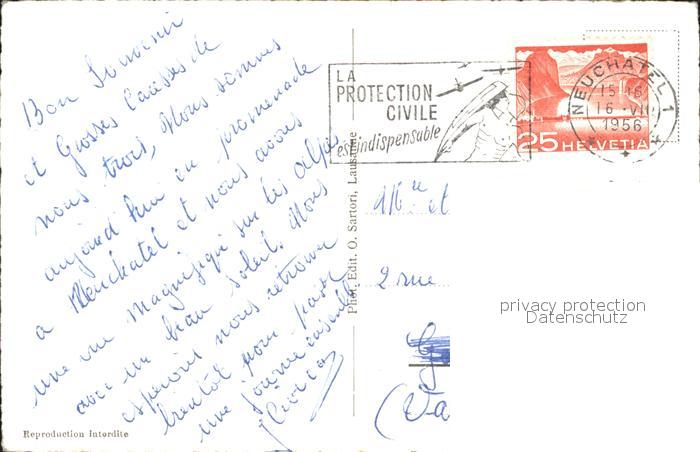 Bon Souvenir
et Grosses Caresses de
nous trois, Nous sommes
aujourd'hui en promenade
a Neuchatel et nous avons
une vue magnifique sur les alpes
avec un beau soleil. Nous
esperons nous retrouver
bientôt pour passer
une journée ensemble
Reproduction interdite
Phot. Edit. O. Sartori, Lausanne
LA
PROTECTION
CIVILE
est indispensable
NEUCHATEL 1
15
16
1956
25 HELVETIA
et
2 rue
privacy protection
Datenschutz